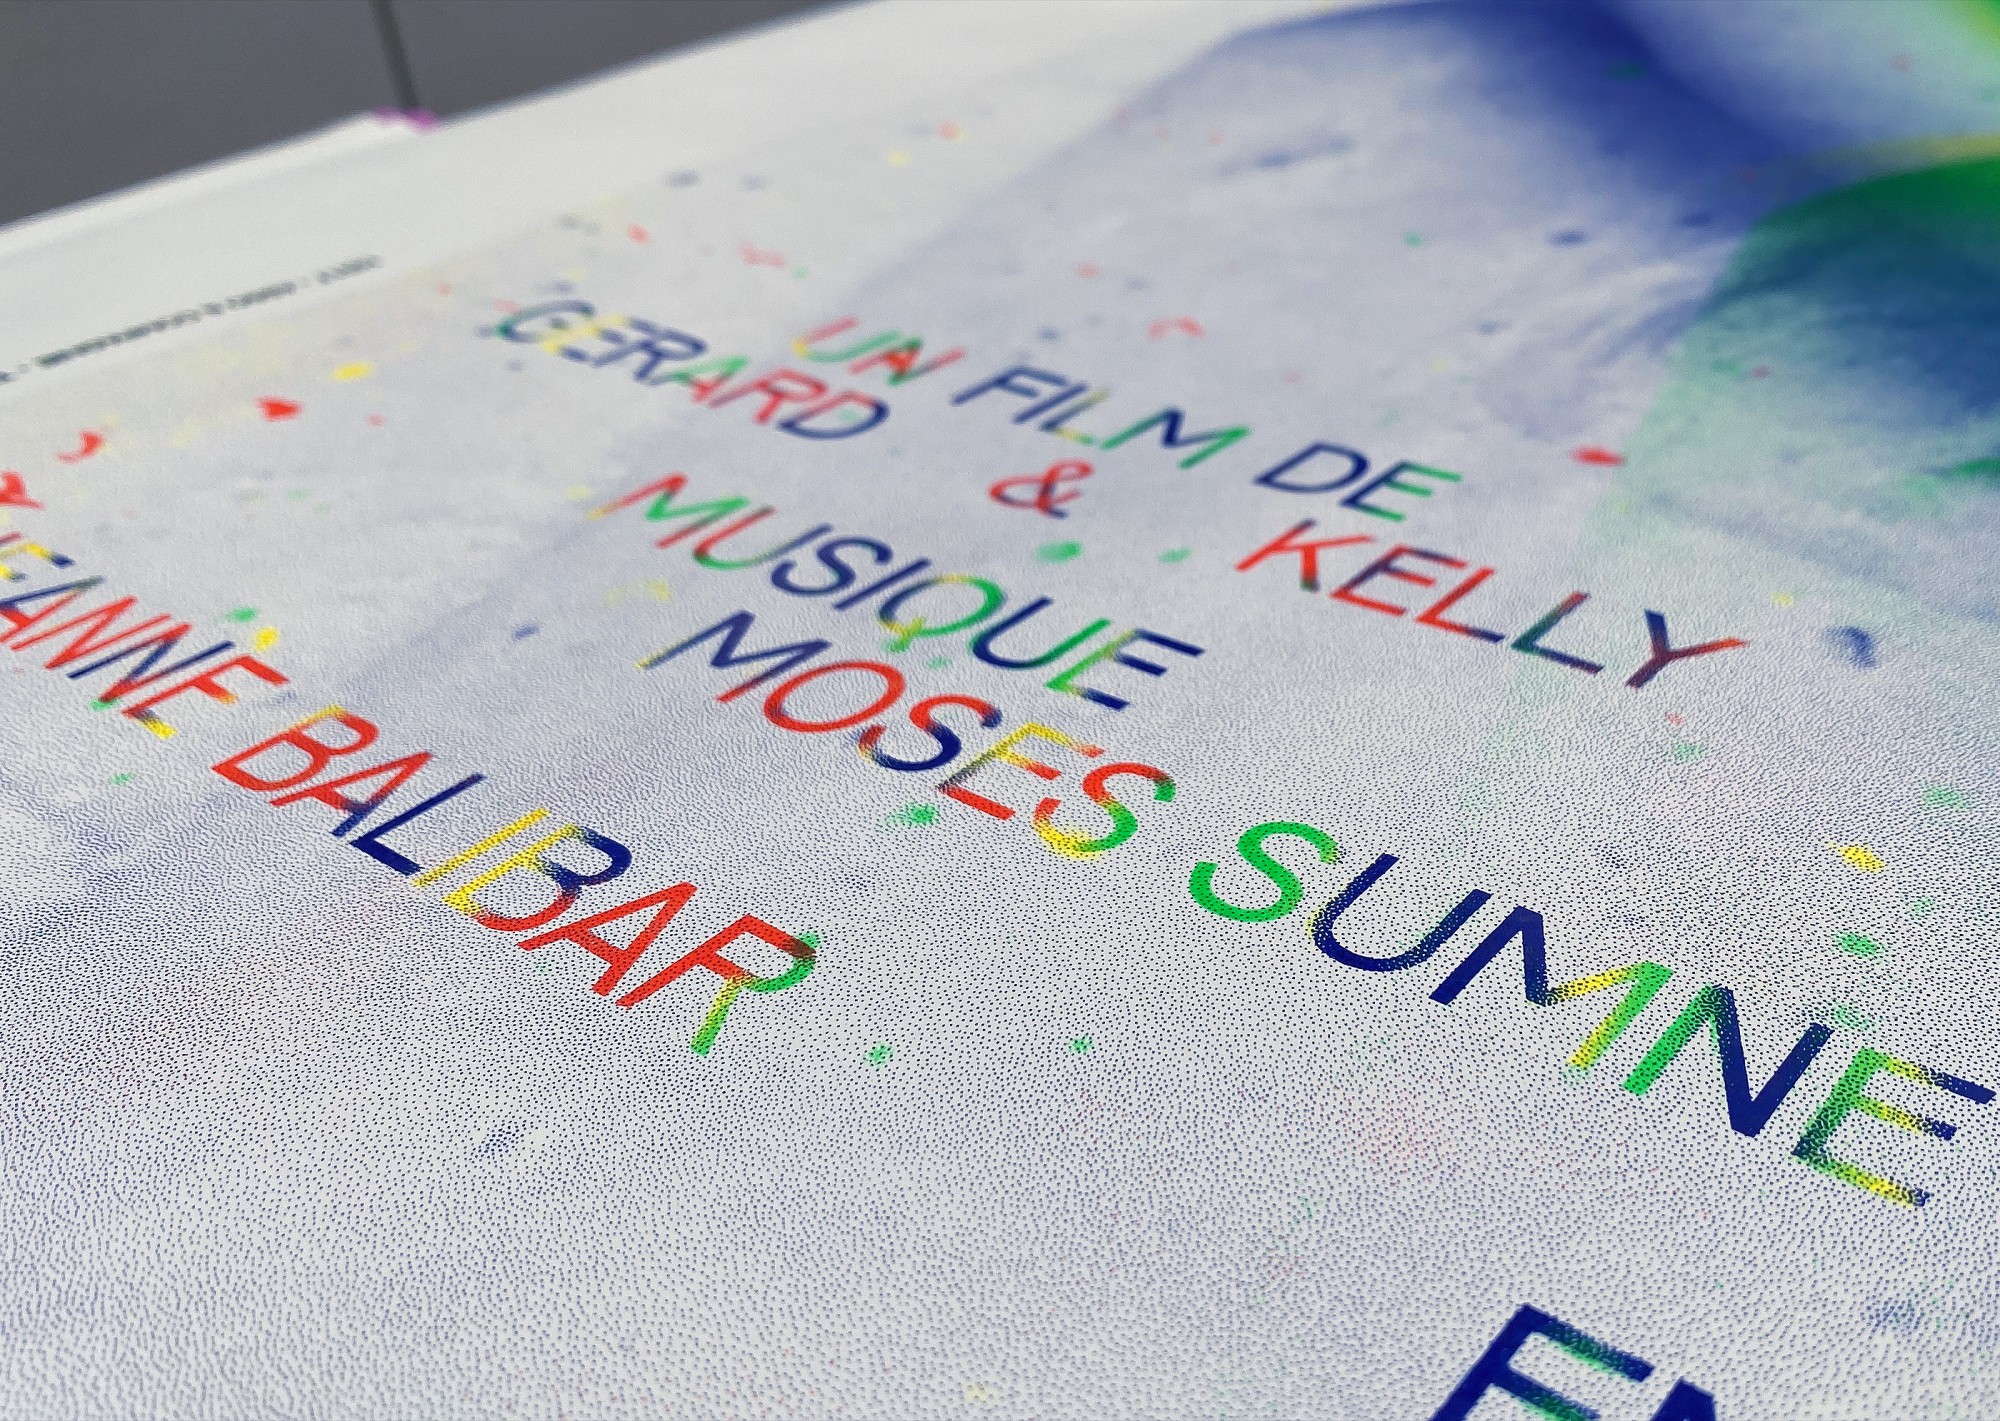 UN FILM DE
GERARD & KELLY
MUSIQUE
MOSES SUMNE
JEANNE BALIBAR